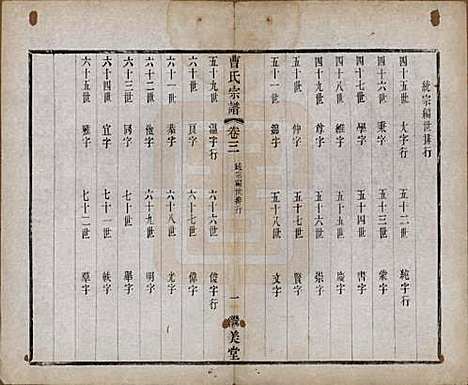 統宗編世排行
四十五世 大字行 五十二世 純字行
四十六世 秉字 五十三世 棠字
四十七世 學字 五十四世 齊字
四十八世 維字 五十五世 慶字
四十九世 尊字 五十六世 崇字
五十世 仲字 五十七世 賢字
五十一世 錫字 五十八世 文字
曹氏宗譜 卷三 統宗編世排行 一 美堂
五十九世 溫字行 六十六世 俊字行
六十世 良字 六十七世 偉字
六十一世 恭字 六十八世 光字
六十二世 儉字 六十九世 明字
六十三世 同字 七十世 舉字
六十四世 宜字 七十一世 帙字
六十五世 雍字 七十二世 羣字